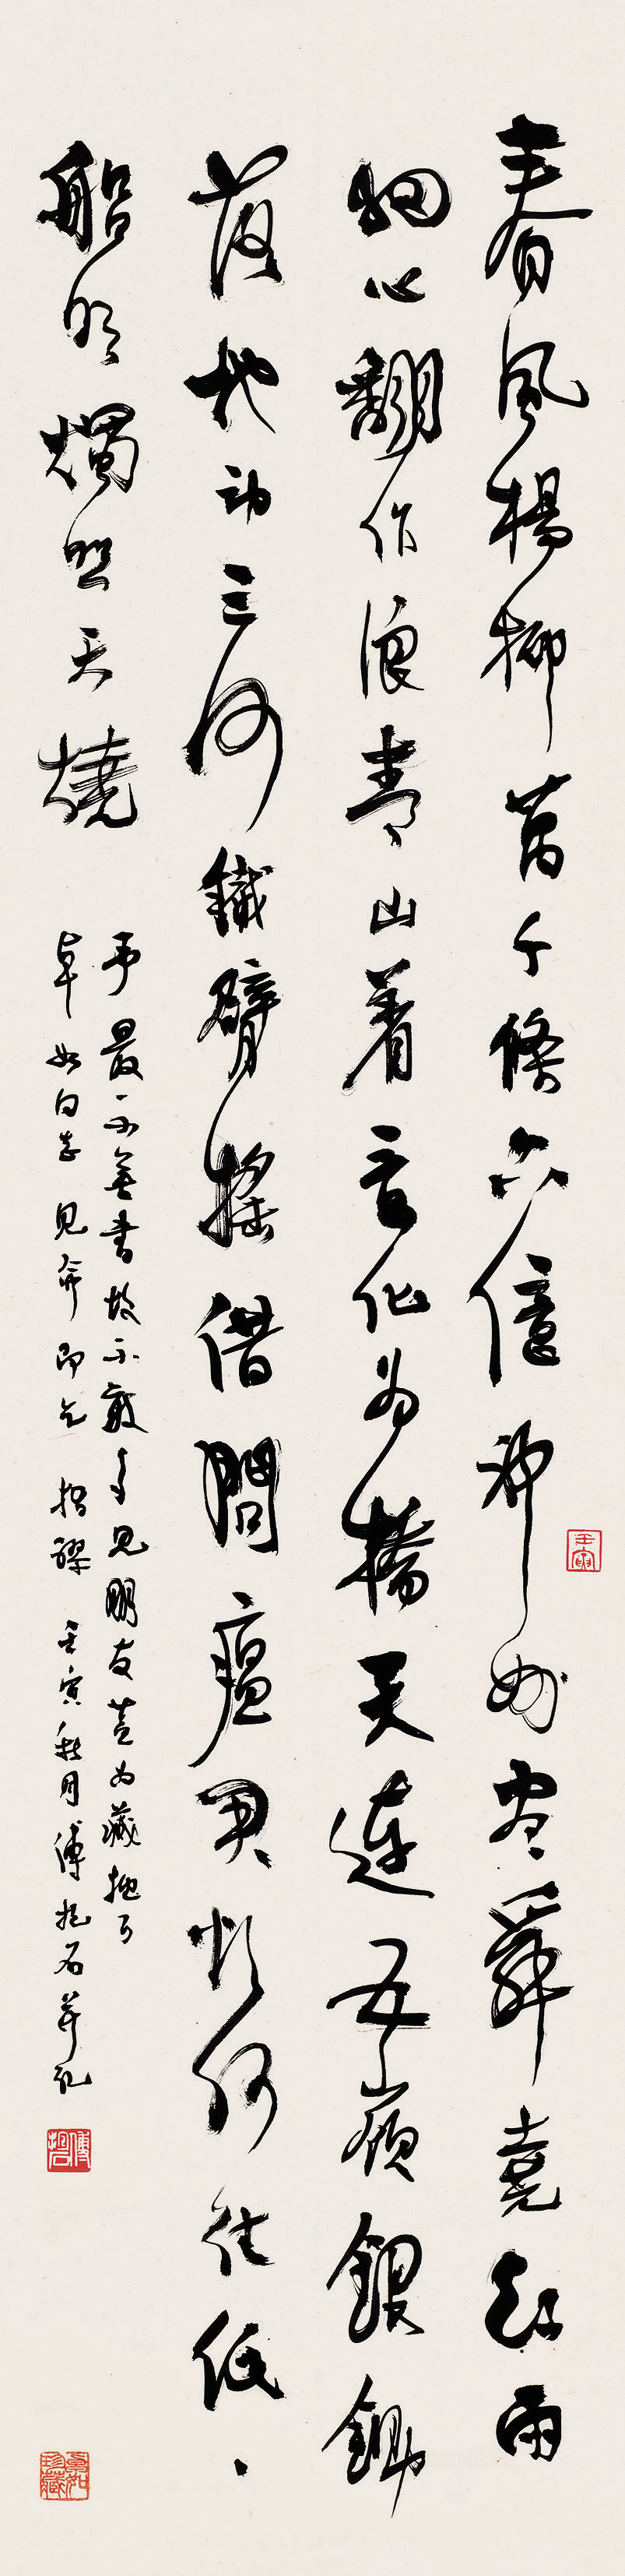 春風楊柳萬千條六億神州盡舜堯紅雨
細心翻作浪青山着意化為橋天連五嶺銀鋤
落地動三河鐵臂搖借問瘟君欲何往紙ゝ
船明燭照天燒
予最不善書故不敢見朋友蓋為藏拙耳
卓如同志見命即乞指謬 壬寅秋月傅抱石並記
壬寅
傅抱石
卓如珍藏